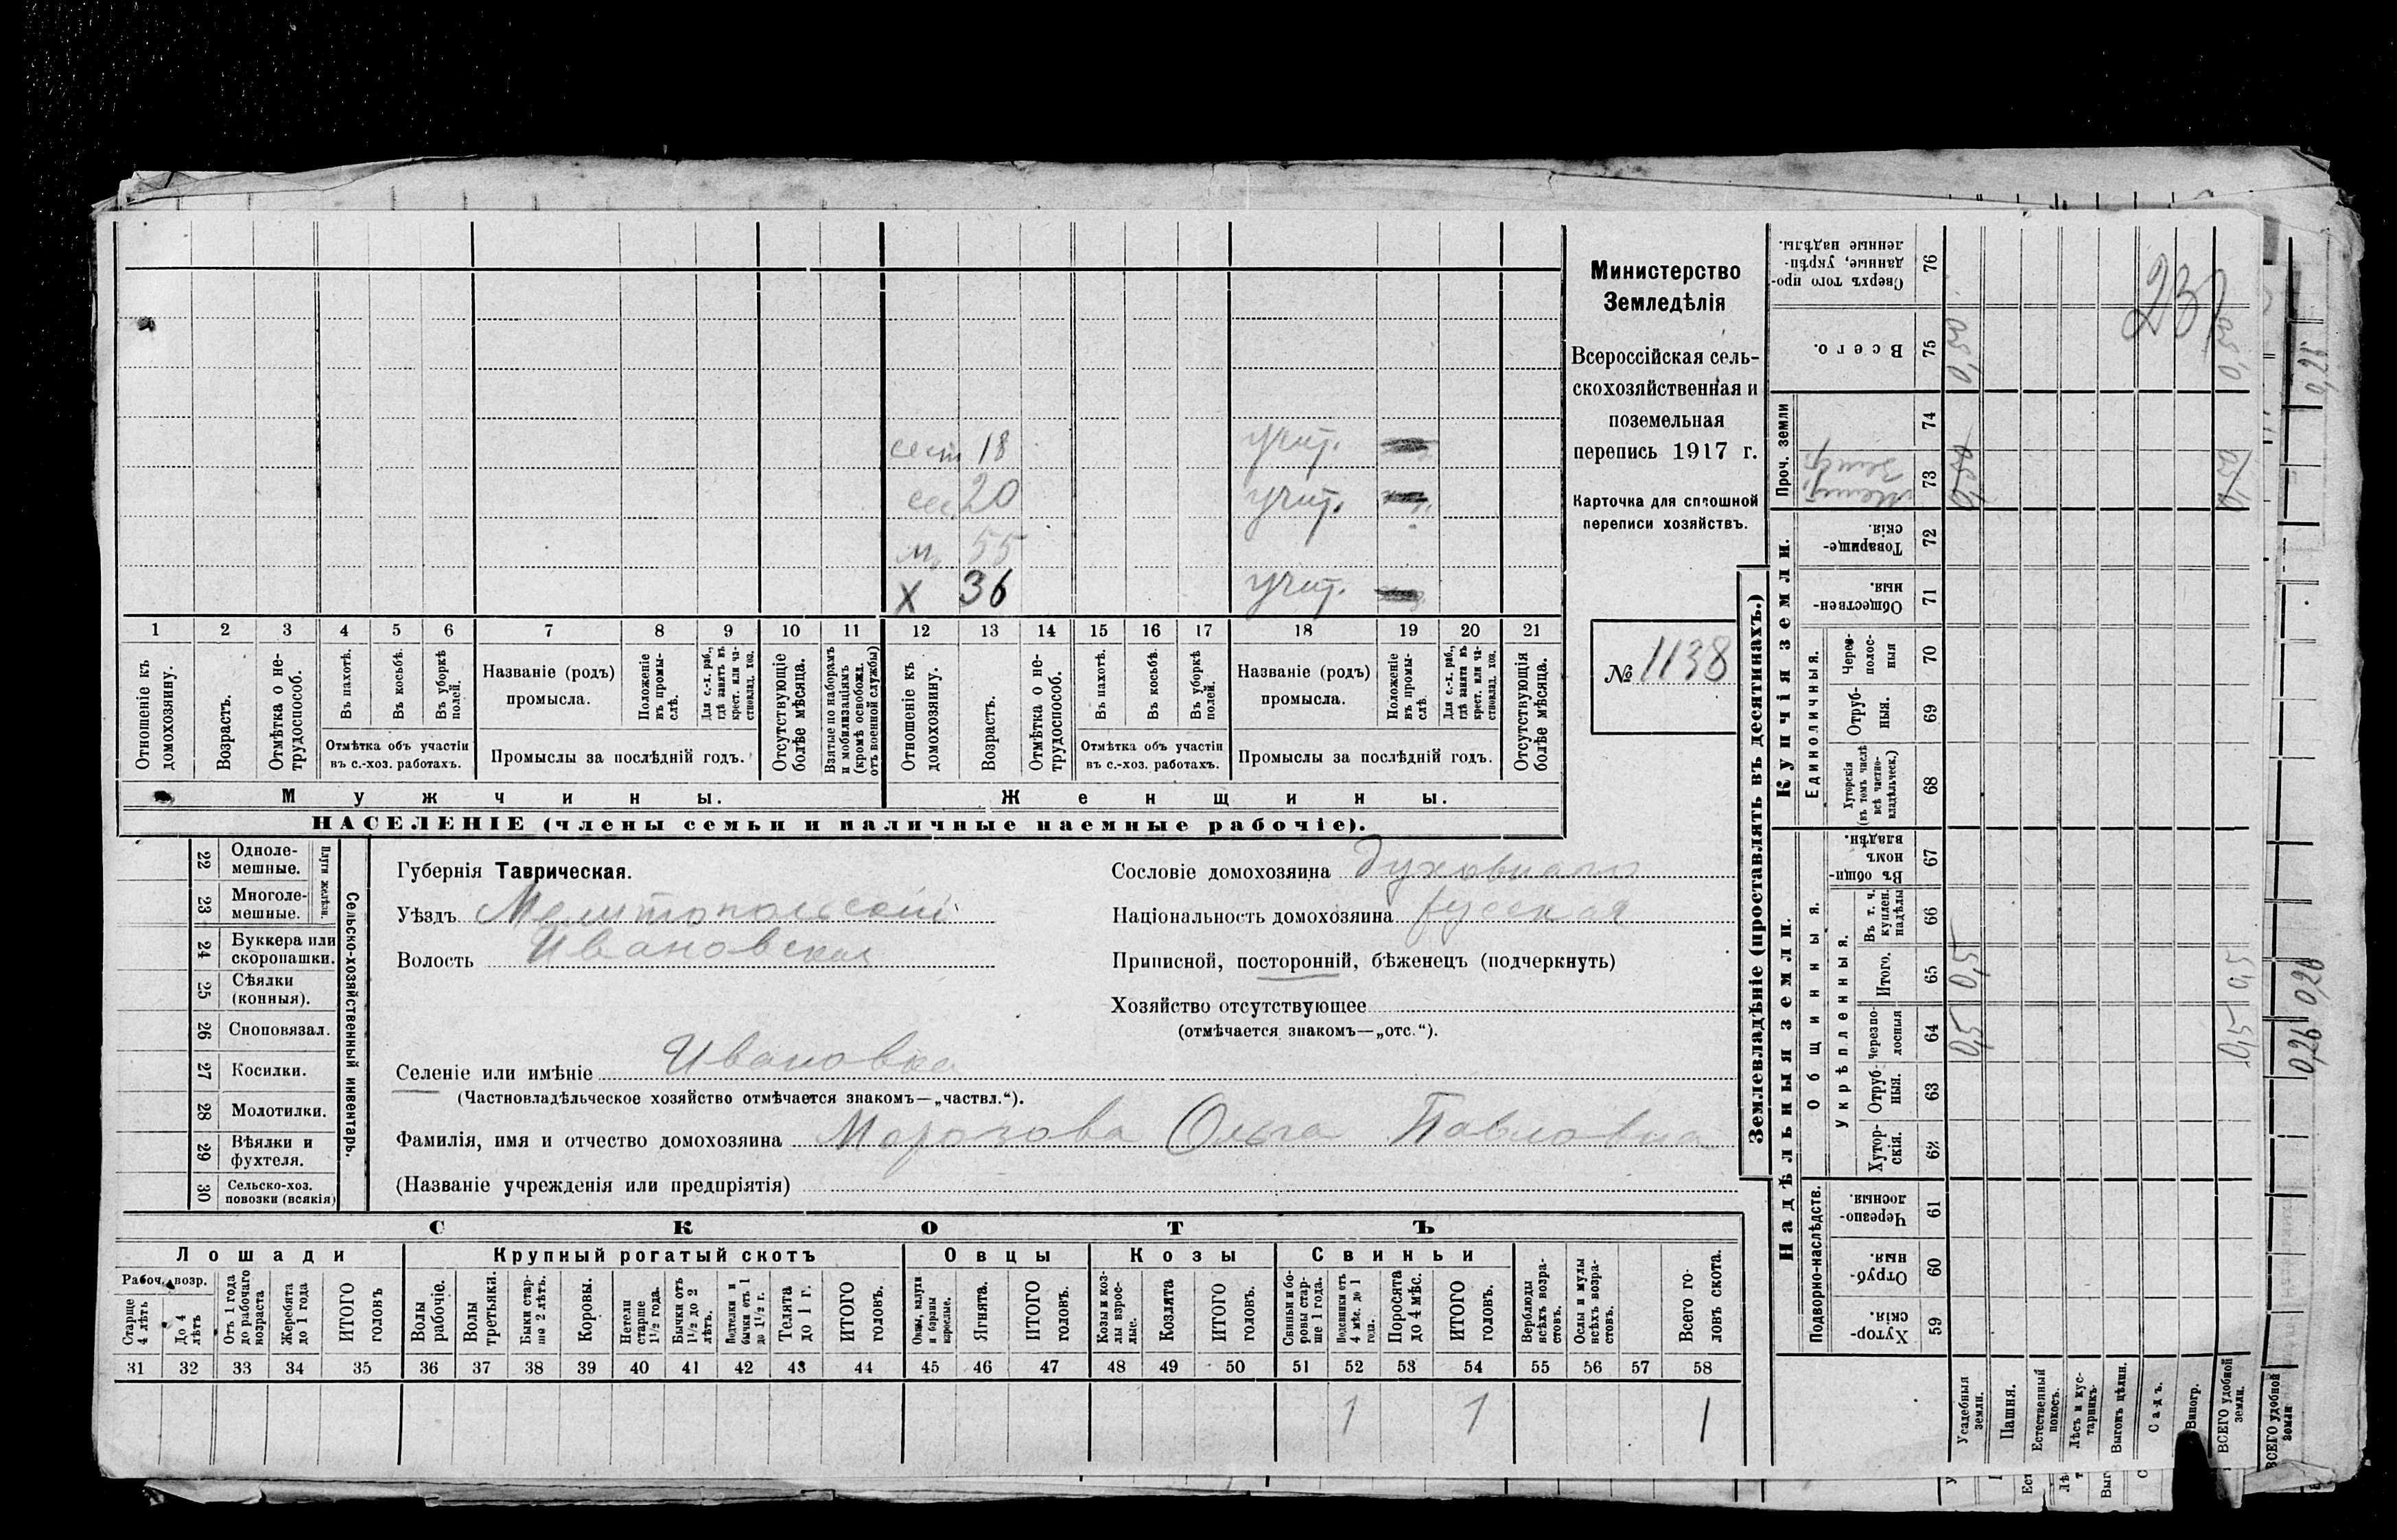 сест 18 учит.
се 20 учит.
м. 55
X 36 учит.
1 2 3 4 5 6 7 8 9 10 11 12 13 14 15 16 17 18 19 20 21
Отношеніе къ домохозяину.
Возрастъ.
Отмѣтка о не-
трудоспособ.
Въ пахотѣ.
Въ косьбѣ.
Въ уборкѣ полей.
Отмѣтка объ участіи
въ с.-хоз. работахъ.
Названіе (родъ)
промысла.
Положеніе въ промы-
слѣ.
Для с.-х. раб., гдѣ занятъ въ крест. или ча-
стновлад. хоз.
Промыслы за послѣдній годъ.
Отсутствующіе болѣе мѣсяца.
Взятые по наборамъ и мобилизаціямъ (кромѣ освобожд. отъ военной службы)
Отношеніе къ домохозяину.
Возрастъ.
Отмѣтка о не-
трудоспособ.
Въ пахотѣ.
Въ косьбѣ.
Въ уборкѣ полей.
Отмѣтка объ участіи
въ с.-хоз. работахъ.
Названіе (родъ)
промысла.
Положеніе въ промы-
слѣ.
Для с.-х. раб., гдѣ занята въ крест. или ча-
стновлад. хоз.
Промыслы за послѣдній годъ.
Отсутствующія болѣе мѣсяца.
Мужчины.
Женщины.
НАСЕЛЕНІЕ (члены семьи и наличные наемные рабочіе).
Министерство
Земледѣлія
Всероссійская сель-
скохозяйственная и
поземельная
перепись 1917 г.
Карточка для сплошной
переписи хозяйствъ.
№ 1138
22 Одноле-
мешные.
23 Многоле-
мешные.
Плуги желѣзн.
24 Буккера или
скоропашки.
25 Сѣялки
(конныя).
26 Сноповязал.
27 Косилки.
28 Молотилки.
29 Вѣялки и
фухтеля.
30 Сельско-хоз.
повозки (всякія)
Сельско-хозяйственный инвентарь.
Губернія Таврическая.
Уѣздъ Мелитопольскій
Волость Ивановская
Селеніе или имѣніе Ивановка
(Частновладѣльческое хозяйство отмѣчается знакомъ—„частвл.“).
Фамилія, имя и отчество домохозяина Морозова Ольга Павловна
(Названіе учрежденія или предпріятія)
Сословіе домохозяина Духовнаго
Національность домохозяина русская
Приписной, посторонній, бѣженецъ (подчеркнуть)
Хозяйство отсутствующее
(отмѣчается знакомъ—„отс.“).
СКОТЪ
Лошади
Крупный рогатый скотъ
Овцы
Козы
Свиньи
Рабоч. возр.
Старше 4 лѣтъ
До 4 лѣтъ
Отъ 1 года до рабочаго возраста
Жеребята до 1 года
ИТОГО головъ
Волы рабочіе.
Волы третьяки.
Быки стар-
ше 2 лѣтъ.
Коровы.
Нетели старше 1½ года.
Бычки отъ 1½ до 2 лѣтъ.
Подтелки и бычки отъ 1 до 1½ г.
Телята до 1 г.
ИТОГО головъ.
Овцы, валухи и бараны взрослые.
Ягнята.
ИТОГО головъ.
Козы и коз-
лы взрос-
лые.
Козлята
ИТОГО головъ.
Свиньи и бо-
ровы стар-
ше 1 года.
Подсвинки отъ 4 мѣс. до 1 года.
Поросята до 4 мѣс.
ИТОГО головъ.
Верблюды всѣхъ возра-
стовъ.
Ослы и мулы всѣхъ возра-
стовъ.
Всего го-
ловъ скота.
31 32 33 34 35 36 37 38 39 40 41 42 43 44 45 46 47 48 49 50 51 52 53 54 55 56 57 58
1 1 1
Землевладѣніе (проставлять въ десятинахъ.)
Надѣльныя земли.
Купчія земли.
Проч. земли
Подворно-наслѣдств.
Общинныя.
Укрѣпленныя.
Единоличныя.
Сверхъ того про-
данные, укрѣп-
ленные надѣлы.
76
Всего.
75 0,50 0,50
74
73
Товарище-
скія.
72
Обществен-
ныя.
71
Черезъ-
полос-
ныя
70
Отруб-
ныя.
69
Хуторскія
(въ томъ числѣ
всѣ частно-
владѣльческ.)
68
Въ общи-
номъ
владѣн.
67
Въ т. ч.
куплен.
надѣлы
66
Итого.
65 0,5 0,5
Черезпо-
лосныя
64 0,5 0,5
Отруб-
ныя.
63
Хутор-
скія.
62
Черезпо-
лосныя
61
Отруб-
ныя.
60
Хутор-
скія
59
Усадебныя
земли.
Пашня.
Естественный
покосъ.
Лѣсъ и кус-
тарникъ.
Выгонъ цѣлин.
Садъ.
Виногр.
ВСЕГО удобной
земли.
ВСЕГО удобной
земли
0,25
0,26 0,26